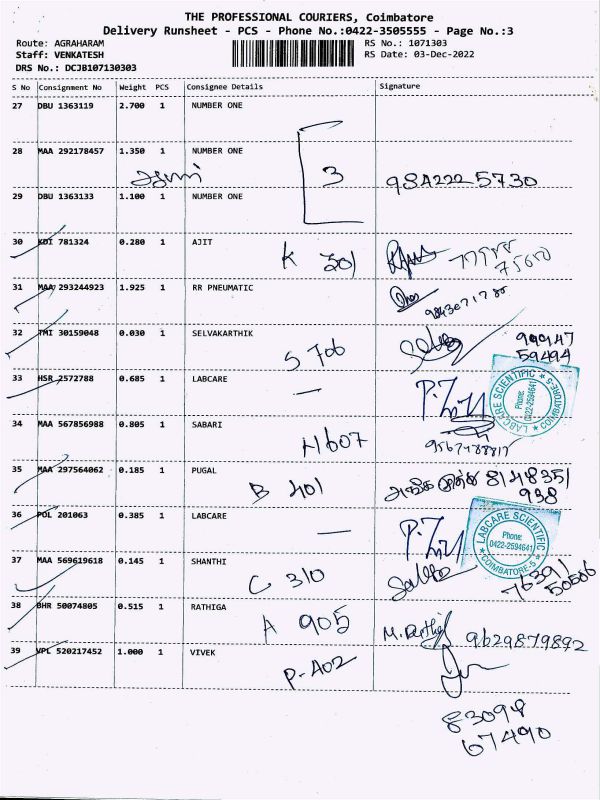 THE PROFESSIONAL COURIERS, Coimbatore
Delivery Runsheet - PCS - Phone No.:0422-3505555 - Page No.:3
Route: AGRAHARAM
RS No.: 1071303
Staff: VENKATESH
RS Date: 03-Dec-2022
DRS No.: DCJB107130303
S No Consignment No Weight PCS Consignee Details Signature
27 DBU 1363119 2.700 1 NUMBER ONE
28 MAA 292178457 1.350 1 NUMBER ONE
3
29 DBU 1363133 1.100 1 NUMBER ONE
30 KDI 781324 0.280 1 AJIT
K 301
31 MAA 293244923 1.925 1 RR PNEUMATIC
32 TMI 30159048 0.030 1 SELVAKARTHIK
S 706
99947
59494
33 HSR 2572788 0.685 1 LABCARE
LABCARE SCIENTIFIC
Phone:
0422-2594641
COIMBATORE-5
34 MAA 567856988 0.805 1 SABARI
H607
35 MAA 297564062 0.185 1 PUGAL
B 401
814835/
938
36 POL 201063 0.385 1 LABCARE
LABCARE SCIENTIFIC
Phone:
0422-2594641
COIMBATORE-5
37 MAA 569619618 0.145 1 SHANTHI
C 310
38 BHR 50074805 0.515 1 RATHIGA
A 905
9629879892
39 VPL 520217452 1.000 1 VIVEK
P-A02
83098
67490